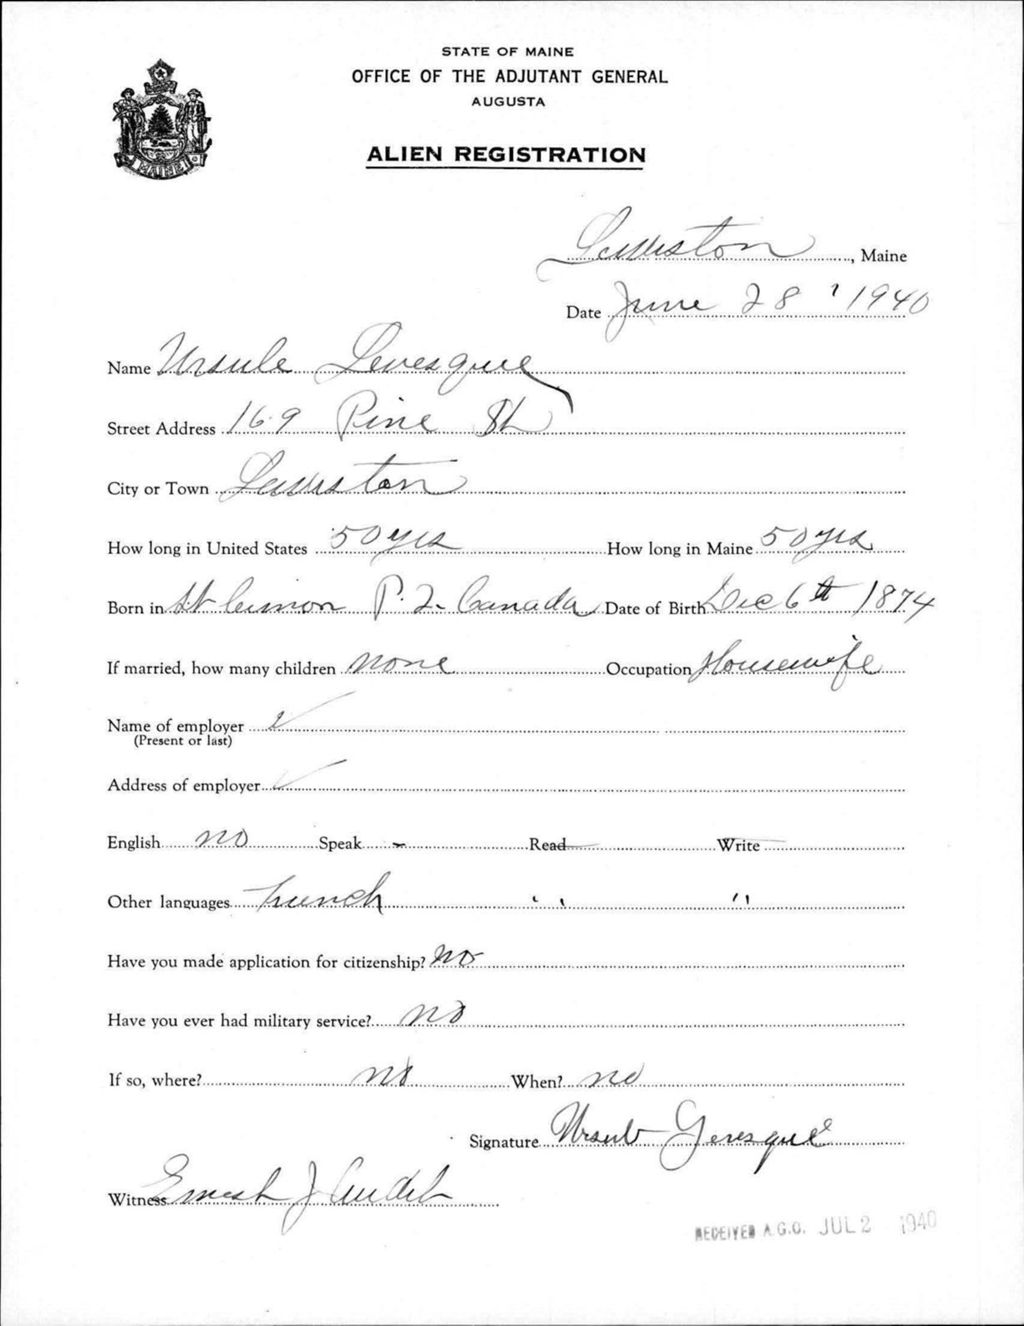 STATE OF MAINE
OFFICE OF THE ADJUTANT GENERAL
AUGUSTA
ALIEN REGISTRATION
MAINE
Lewiston, Maine
Date June 28, 1940
Name Ursule Levesque
Street Address 169 Pine St
City or Town Lewiston
How long in United States 50 yrs How long in Maine 50 yrs
Born in St P. Q. Canada Date of Birth Dec 6th 1874
If married, how many children none Occupation Housewife
Name of employer
(Present or last)
Address of employer
English no Speak - Read Write
Other languages French " "
Have you made application for citizenship? no
Have you ever had military service? no
If so, where? no When? no
Signature Ursule Levesque
Witness Ernest J
RECEIVED A.G.O. JUL 2 1940